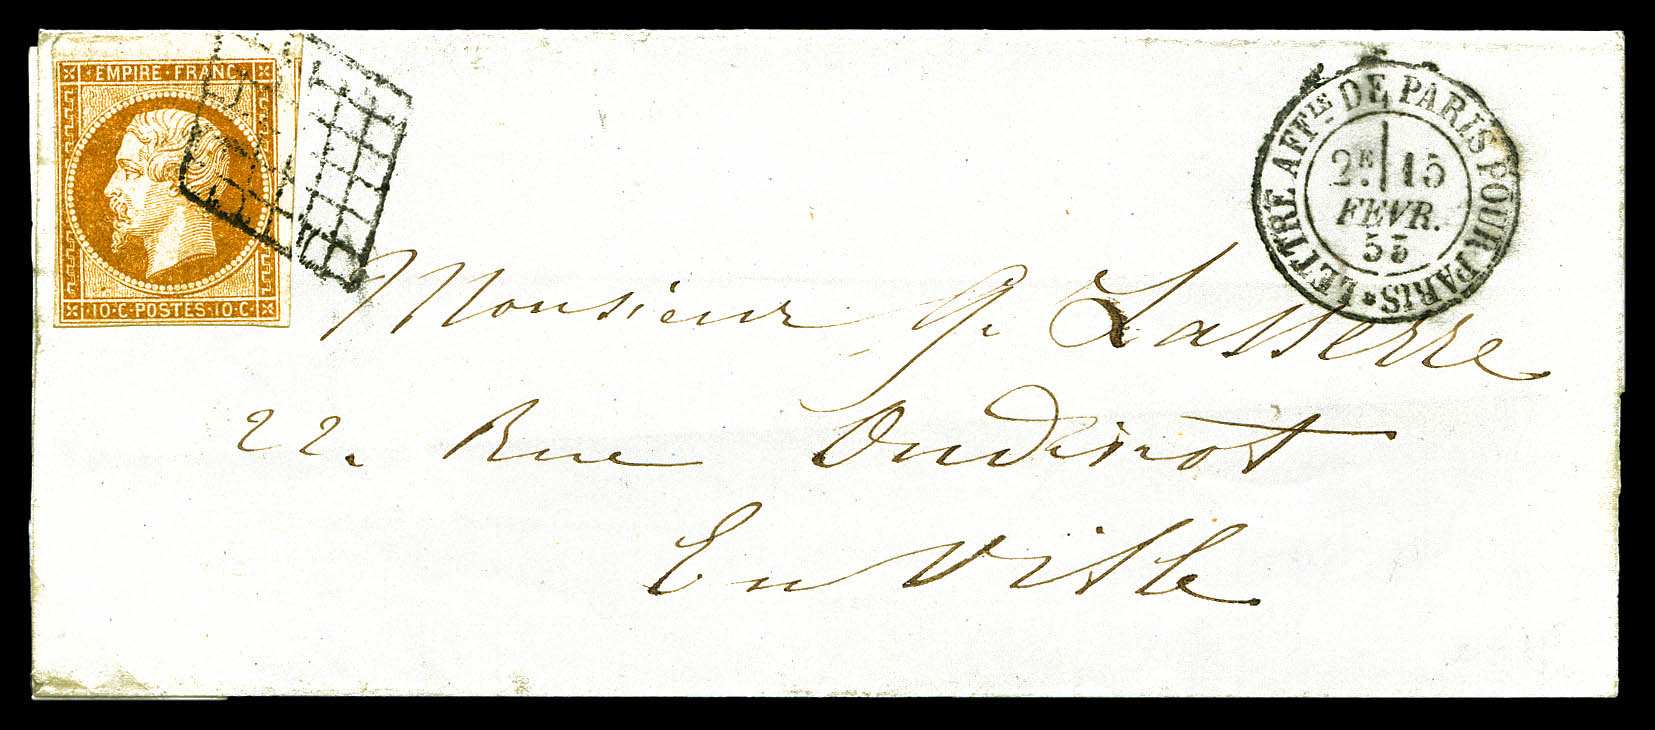 EMPIRE · FRANC.
10·C·POSTES·10·C·
LETTRE AFFIE DE PARIS POUR PARIS
2E. 15
FEVR.
55
Monsieur G. Lasserre
22. Rue Oudinot
En Ville